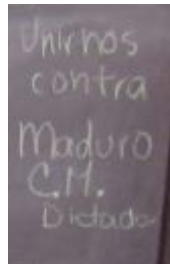 Unirnos
contra
Maduro
C.M.
Dictador